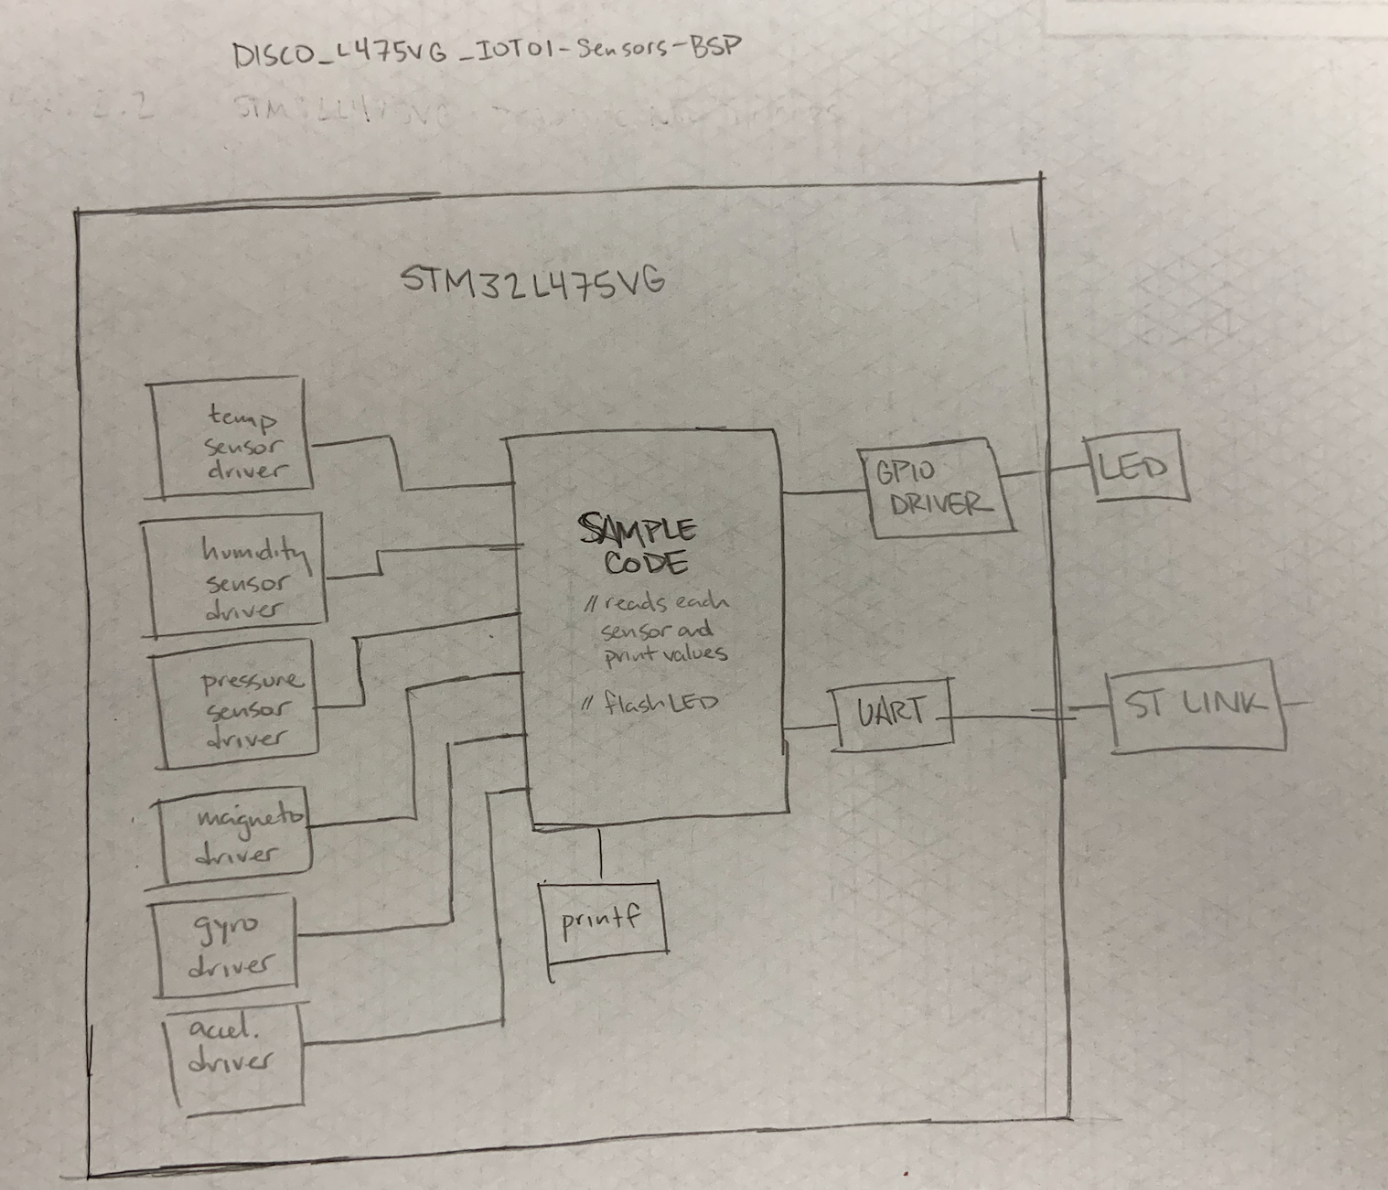 DISCO_L475VG_IOT01-Sensors-BSP
STM32L475VG
temp
sensor
driver
humidity
sensor
driver
pressure
sensor
driver
magneto
driver
gyro
driver
accel.
driver
SAMPLE
CODE
// reads each
sensor and
print values
// flash LED
printf
GPIO
DRIVER
LED
UART
ST LINK